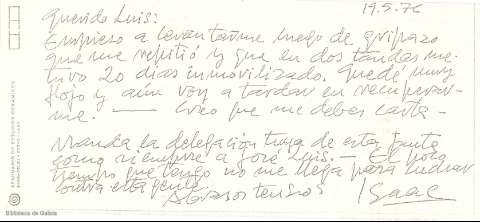 19.5.76
Querido Luis:
Empieso a levantarme luego de gripazo
que me repitió y que en dos tandas me
tuvo 20 dias inmovilizado. Quedé muy
flojo y aún voy a tardar en recuperar-
me. — Creo que me debes carta -
Manda la delegación tuya de esta Junta
como siempre a José Luis. — El poco
tiempo que tengo no me llega para luchar
contra esta gente.
Abrazos tensos Isaac
Biblioteca de Galicia